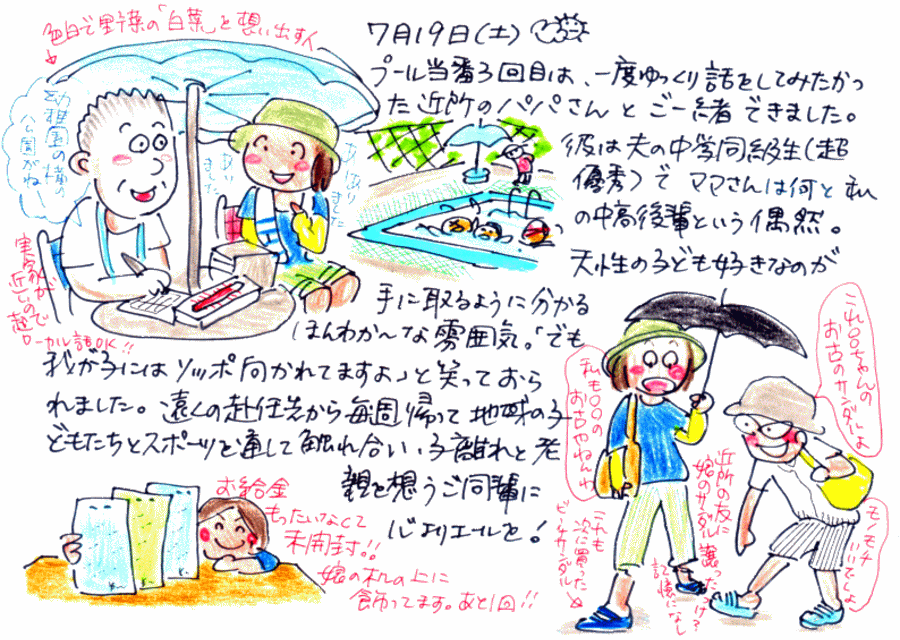 色白で野菜の「白菜」を想い出す人
7月19日(土)
プール当番3回目は、一度ゆっくり話をしてみたかっ
た近所のパパさんとご一緒できました。
彼は夫の中学同級生(超
優秀)でママさんは何と私
の中高後輩という偶然。
天性の子ども好きなのが
手に取るように分かる
ほんわか〜な雰囲気。「でも
我が子にはソッポ向かれてますよ」と笑っておら
れました。遠くの赴任先から毎週帰って地域の子
どもたちとスポーツを通して触れ合い、子離れと老
親を想うご同輩に
心よりエールを!
幼稚園の横の
公園がね
ありました
ありました
実家が
近いので
超
ローカル話OK!!
これ〇〇ちゃんの
お古のサンダルよ
私も〇〇の
お古やねんわ
近所の友に
娘のサンダル
譲ったっけ?
記憶になし
モノモチ
いいでしょ
これも
次に買った
ビーチサンダル
お給金
もったいなくて
未開封!!
娘の机の上に
飾ってます。あと1回!!